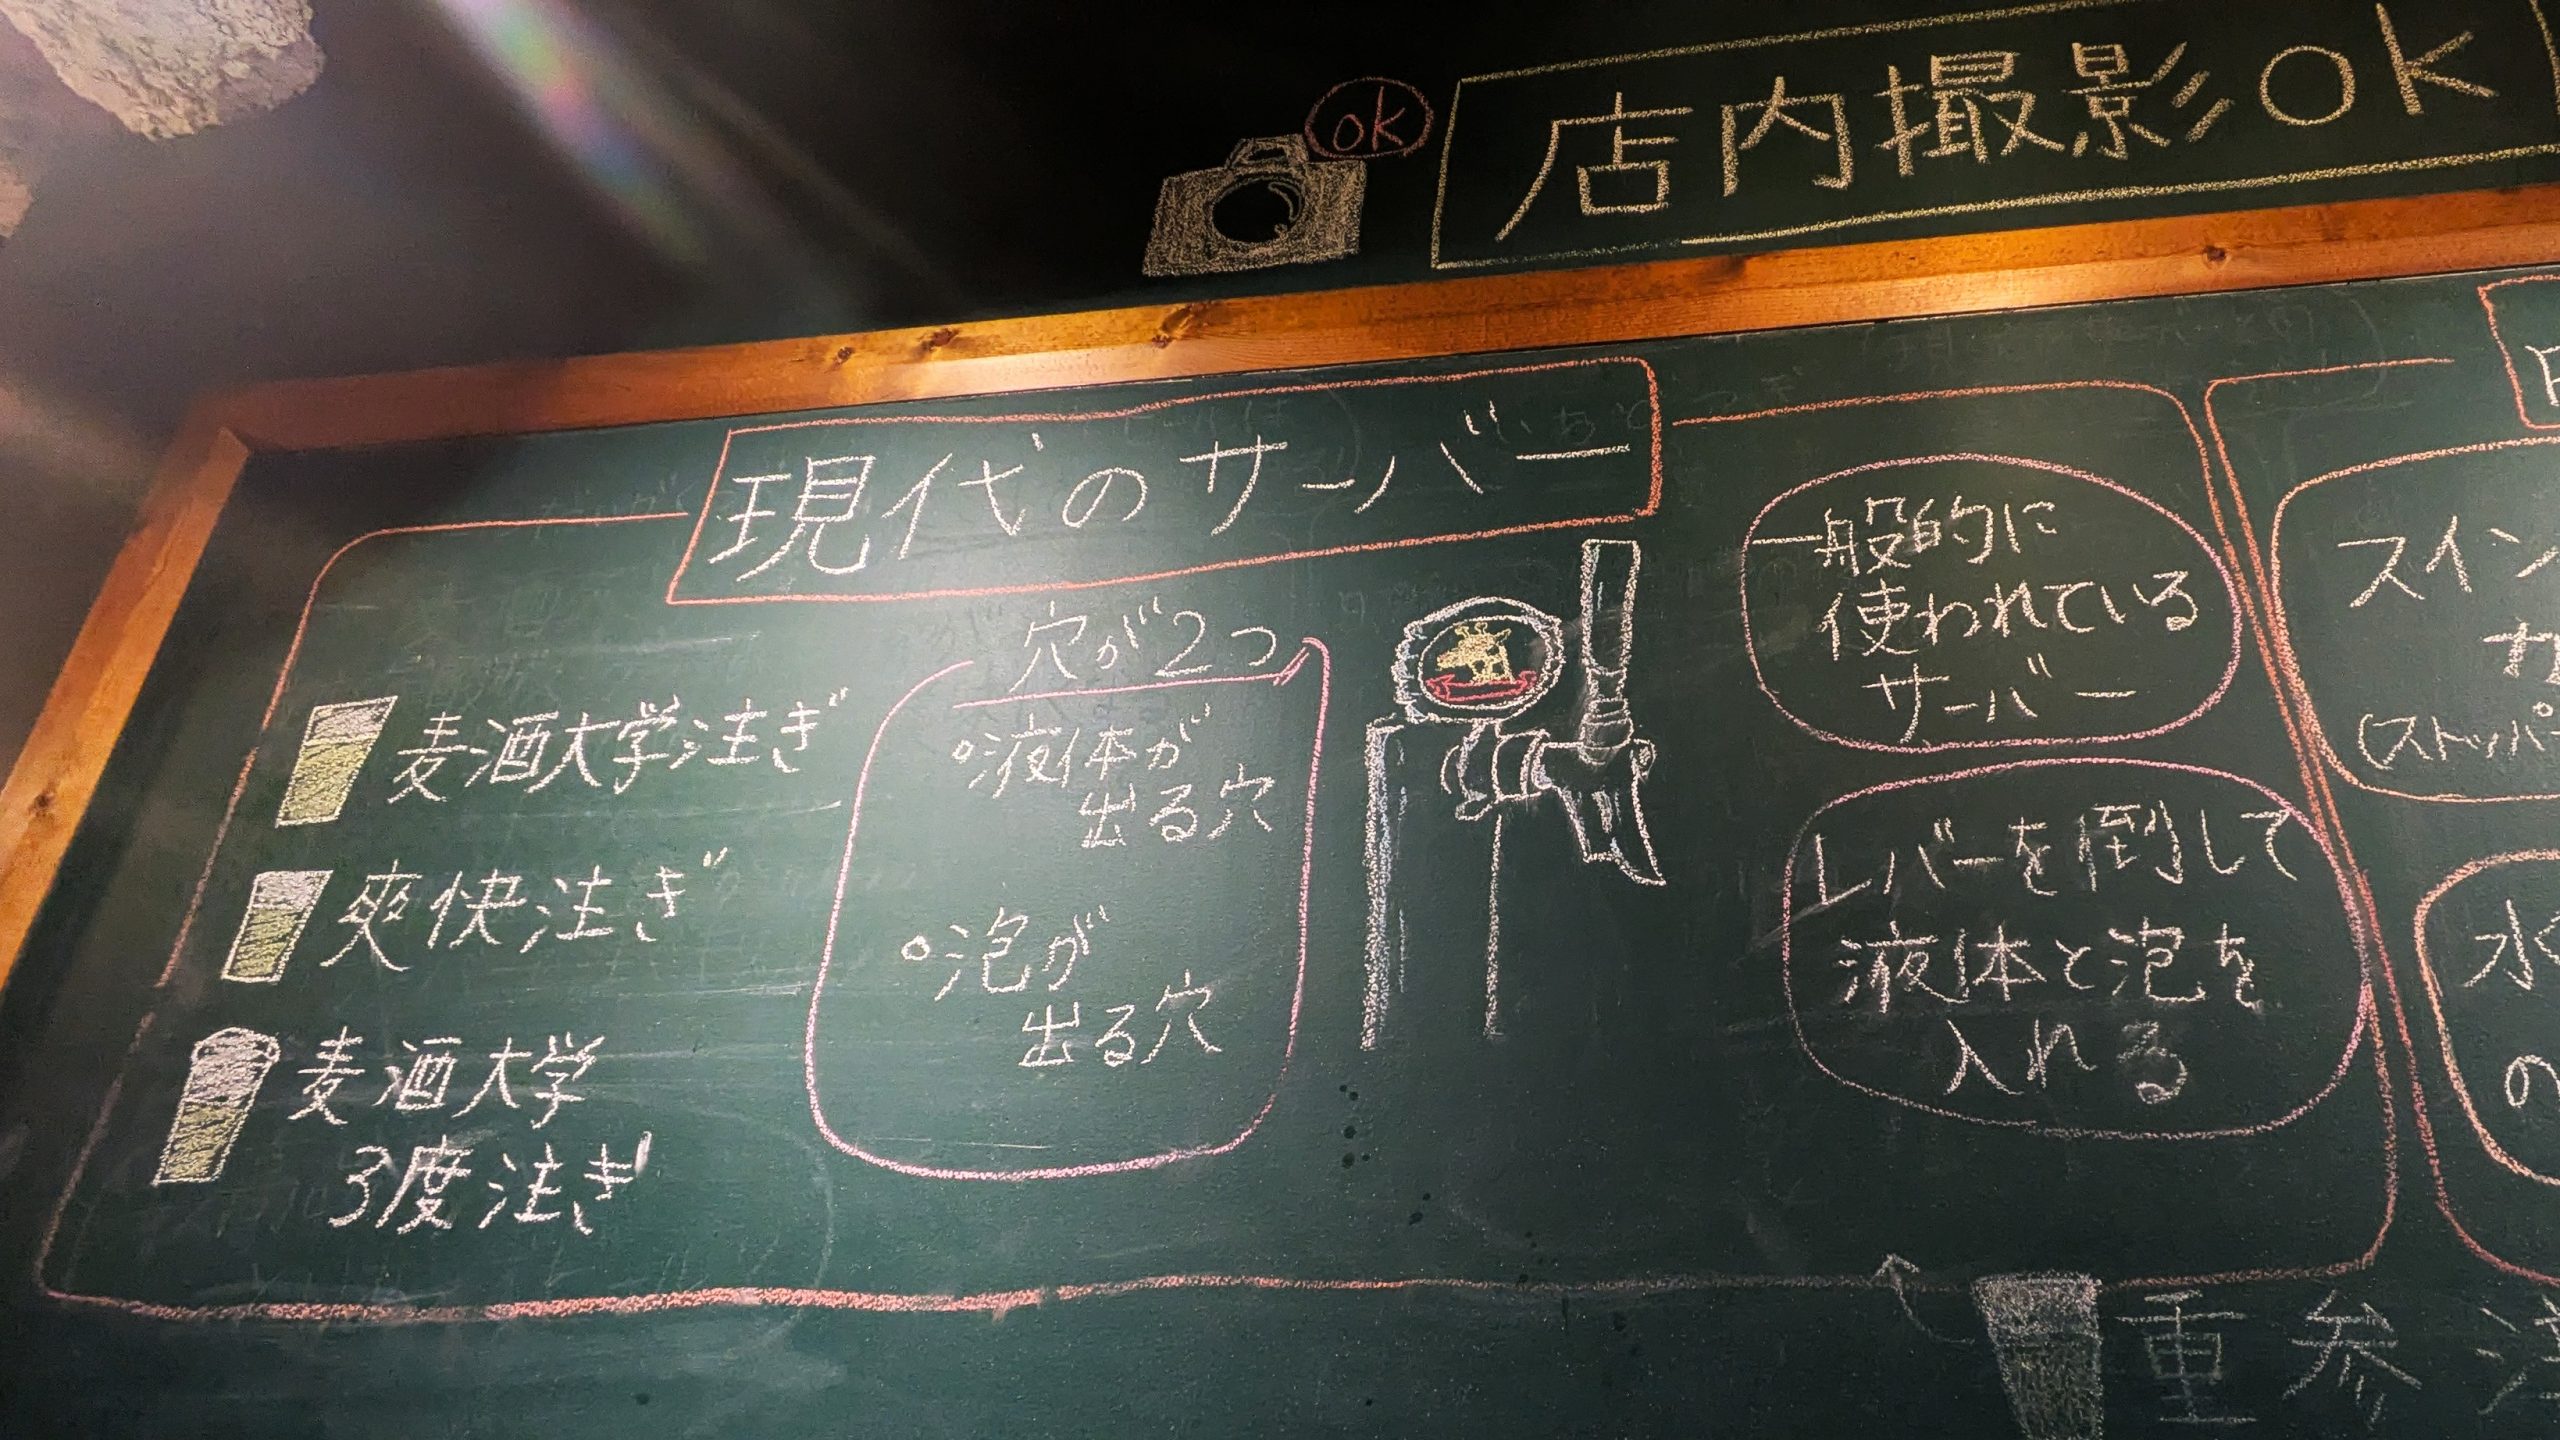 ok
店内撮影OK
現代のサーバー
麦酒大学注ぎ
爽快注ぎ
麦酒大学
3度注ぎ
穴が2つ
液体が
出る穴
泡が
出る穴
一般的に
使われている
サーバー
レバーを倒して
液体と泡を
入れる
スイン
(ストッパー
水
の
重参注